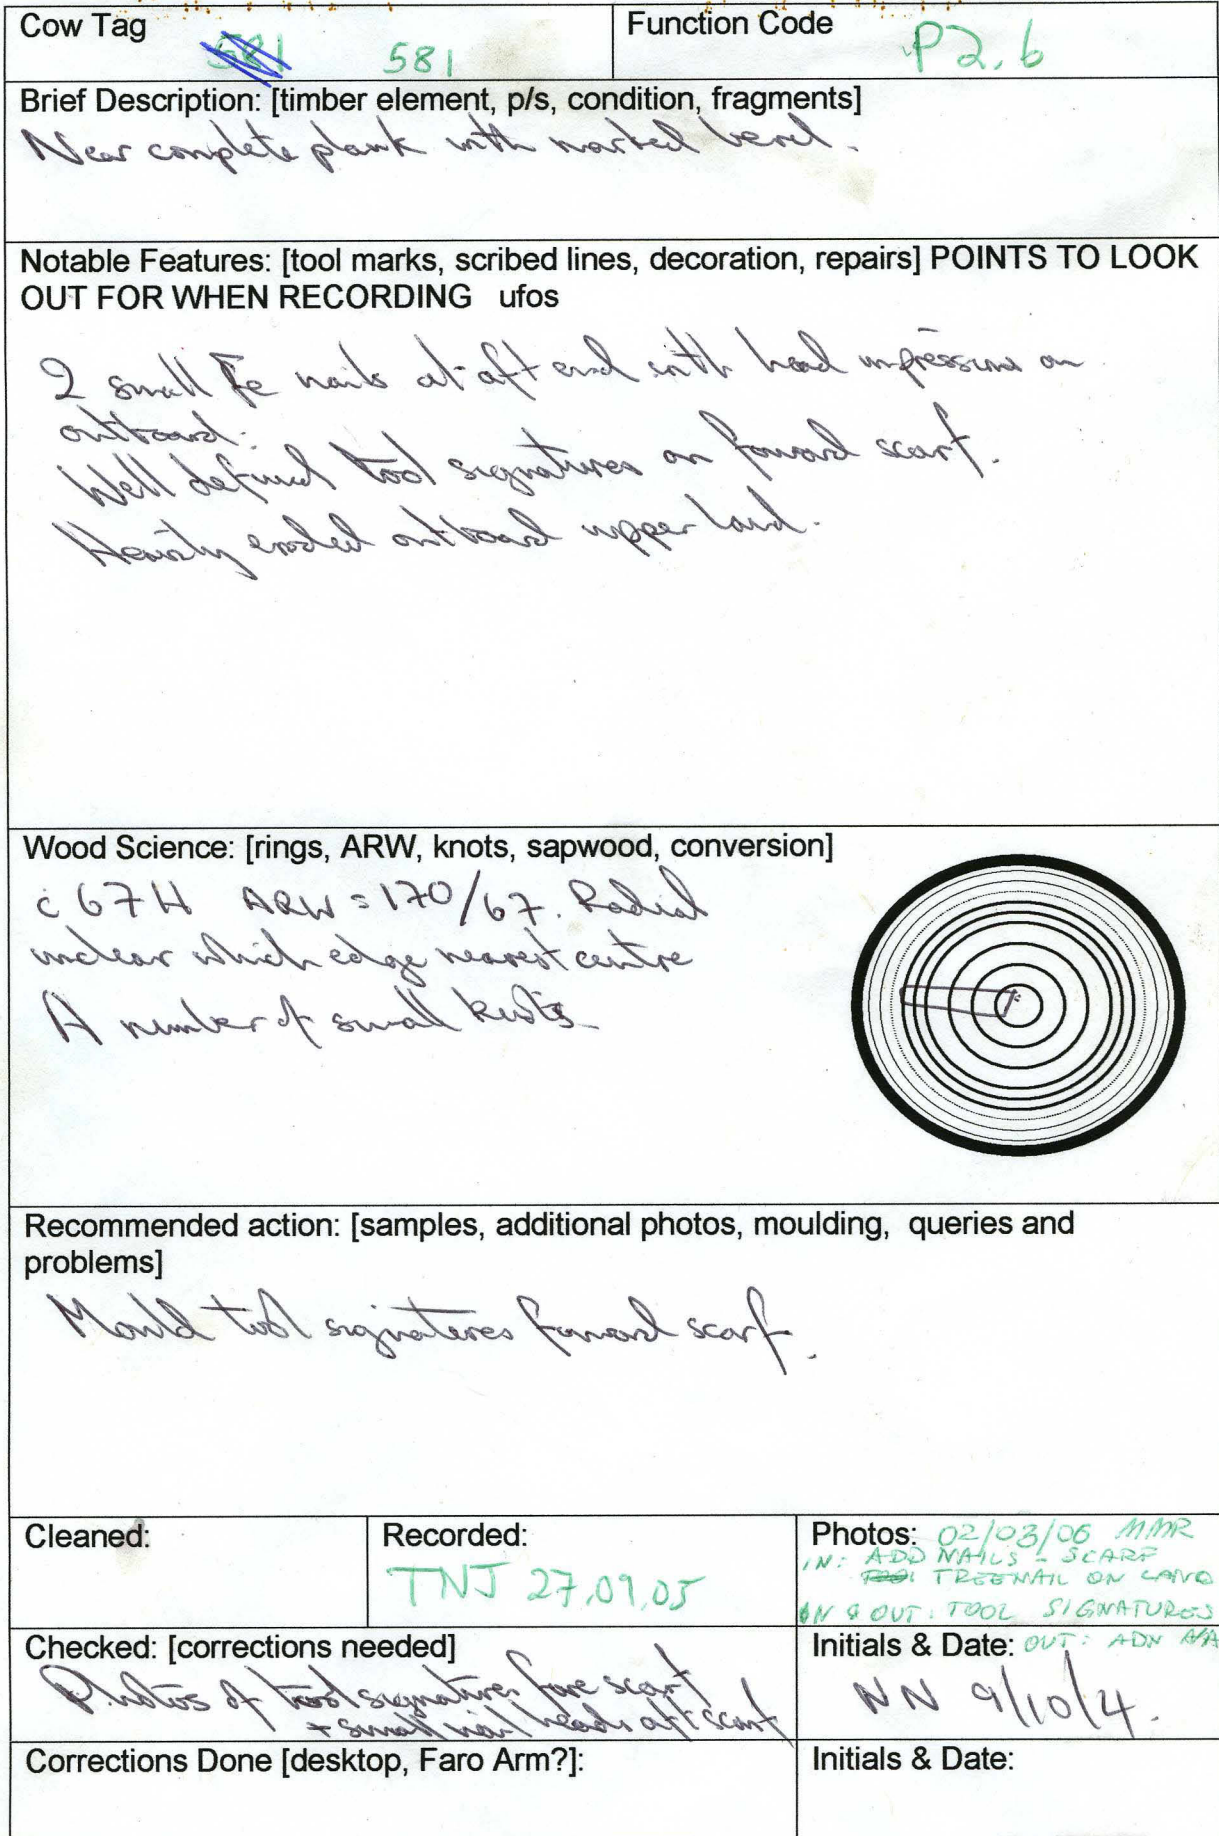 Cow Tag
581 581
Function Code
P2.6
Brief Description: [timber element, p/s, condition, fragments]
Near complete plank with marked bevel.
Notable Features: [tool marks, scribed lines, decoration, repairs] POINTS TO LOOK
OUT FOR WHEN RECORDING ufos
2 small Fe nails at aft end with head impressions on
outboard.
Well defined tool signatures on forward scarf.
Heavily eroded outboard upper land.
Wood Science: [rings, ARW, knots, sapwood, conversion]
c 67 H ARW = 170/67. Radial
unclear which edge nearest centre
A number of small knots
Recommended action: [samples, additional photos, moulding, queries and
problems]
Mould tool signatures forward scarf.
Cleaned:
Recorded:
TNJ 27.09.05
Photos: 02/03/06 MMR
IN: ADD NAILS - SCARF
TREENAIL ON LAND
IN & OUT: TOOL SIGNATURES
OUT: ADN
Checked: [corrections needed]
Photos of tool signatures fore scarf
+ small nail heads aft scarf
Initials & Date:
NN 9/10/4.
Corrections Done [desktop, Faro Arm?]:
Initials & Date: